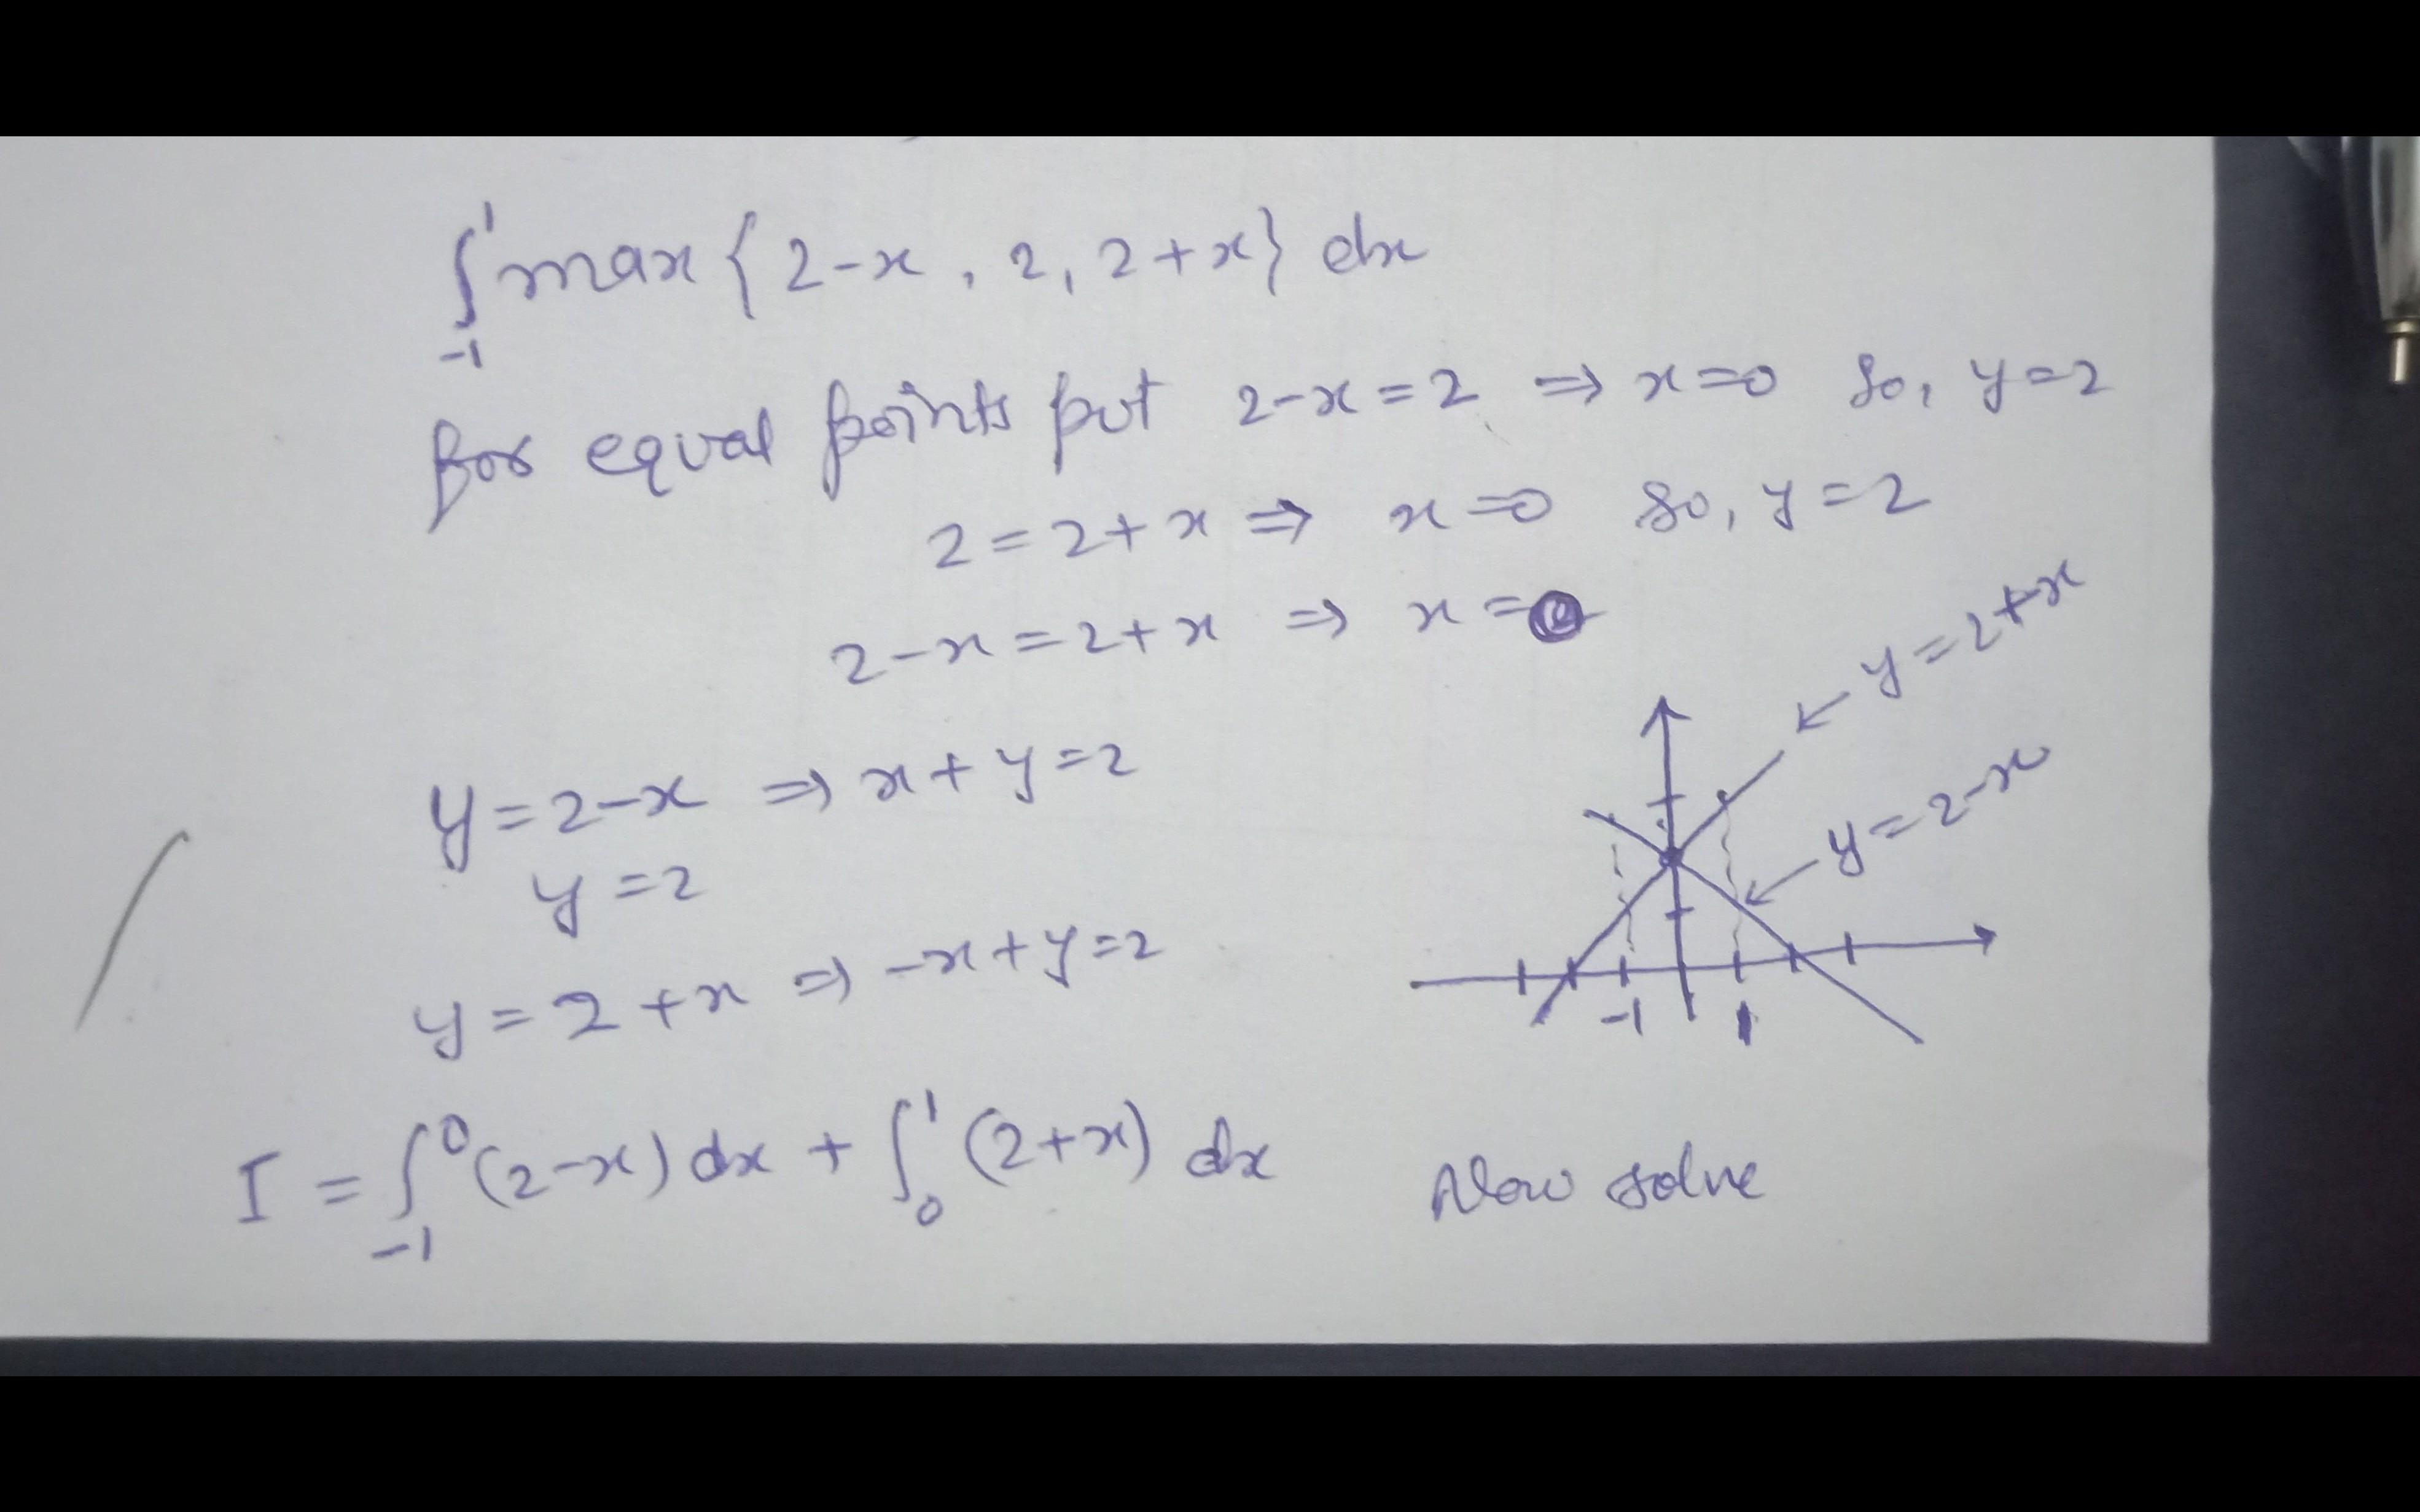 ∫₋₁¹ max { 2-x , 2, 2+x} dx
for equal points put 2-x=2 ⇒ x=0 So, y=2
2=2+x ⇒ x=0 So, y=2
2-x=2+x ⇒ x=
y=2+x
y=2-x ⇒ x+y=2
y=2-x
y=2
y=2+x ⇒ -x+y=2
-1 1
I = ∫₋₁⁰ (2-x) dx + ∫₀¹ (2+x) dx Now solve